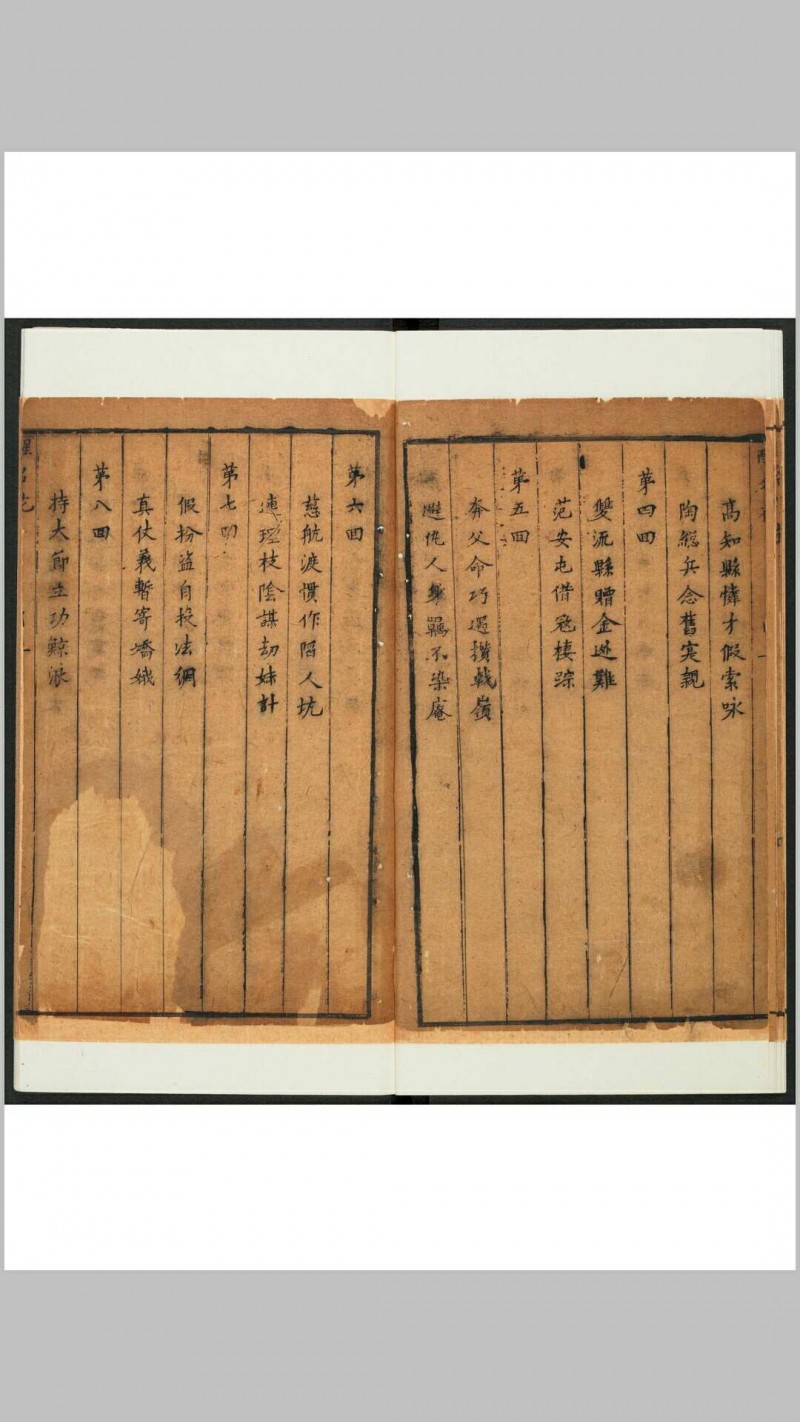 高知縣憐才假索咏
陶總兵念舊寔親
第四回
雙流縣贈金逃難
范安屯借寇棲踪
第五回
奔父命巧遇攢戟嶺
避仇人羈不染庵
第六回
慈航渡慣作陷人坑
連理枝陰謀劫妹計
第七回
假扮盜自投法網
真仗義暫寄嬌娥
第八回
持大節立功鯨浪